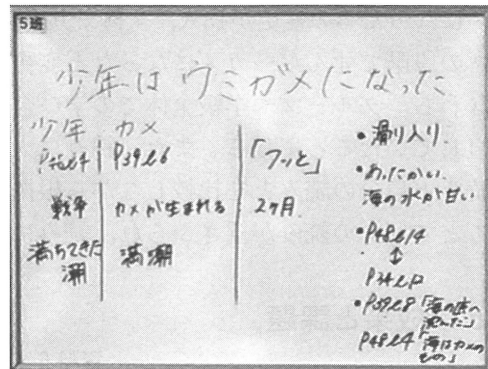 5班
少年はウミガメになった
少年 カメ
P39ℓ6 「フッと」
戦争 カメが生まれる 2ヶ月
満ちてきた潮 満潮
•滑り入り
•あったかい
海の水が甘い
•P48ℓ14
↕
P34ℓ12
•P39ℓ8「海の底へ沈んだ」
P48ℓ4「海はカメのもの」